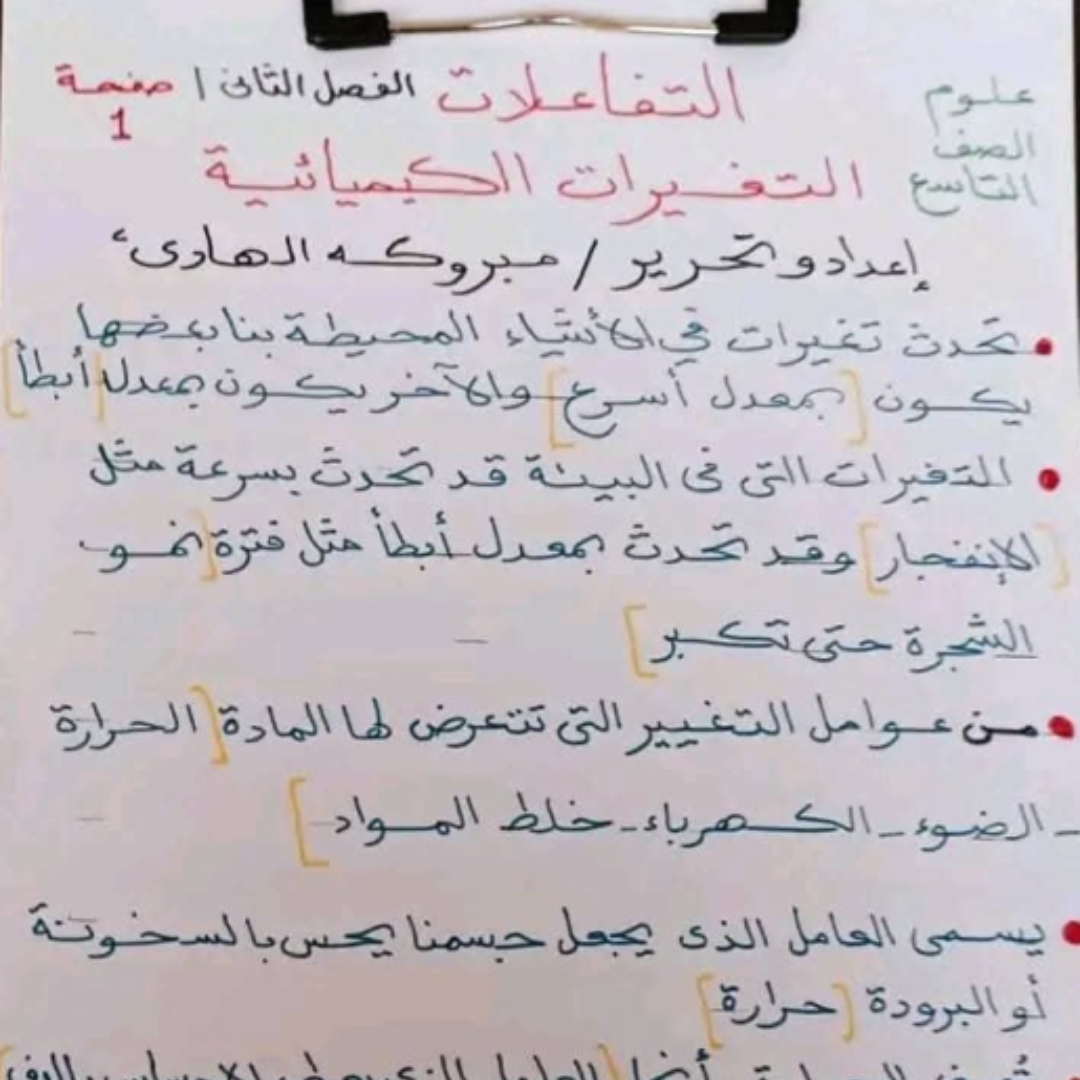 علوم
الصف
التاسع
التفاعلات
الفصل الثاني / صفحة
1
التغيرات الكيميائية
إعداد و تحرير / مبروكه الهادى
• تحدث تغيرات في الأشياء المحيطة بنا بعضها
يكون [بمعدل أسرع] والآخر يكون بمعدل [أبطأ]
• التغيرات التى فى البيئة قد تحدث بسرعة مثل
[الإنفجار] وقد تحدث بمعدل أبطأ مثل فترة [نمو
الشجرة حتى تكبر]
• من عوامل التغيير التى تتعرض لها المادة [الحرارة
_ الضوء _ الكهرباء _ خلط المواد]
• يسمى العامل الذى يجعل جسمنا يحس بالسخونة
أو البرودة [حرارة]